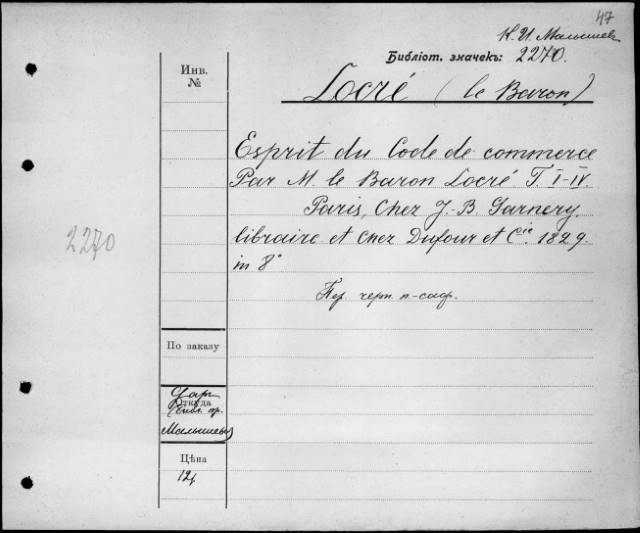 47
К. И. Малышев
Библіот. значекъ: 2270.
Инв.
№
Locré (le Baron)
Esprit du Code de commerce
Par M. le Baron Locré T. I-IV.
Paris, Chez J.-B. Garnery,
libraire et chez Dufour et Cie. 1829.
in 8°
2270
Пер. черн. п-саф.
По заказу
Дар
Откуда
(библ. пр.
Малышева)
Цѣна